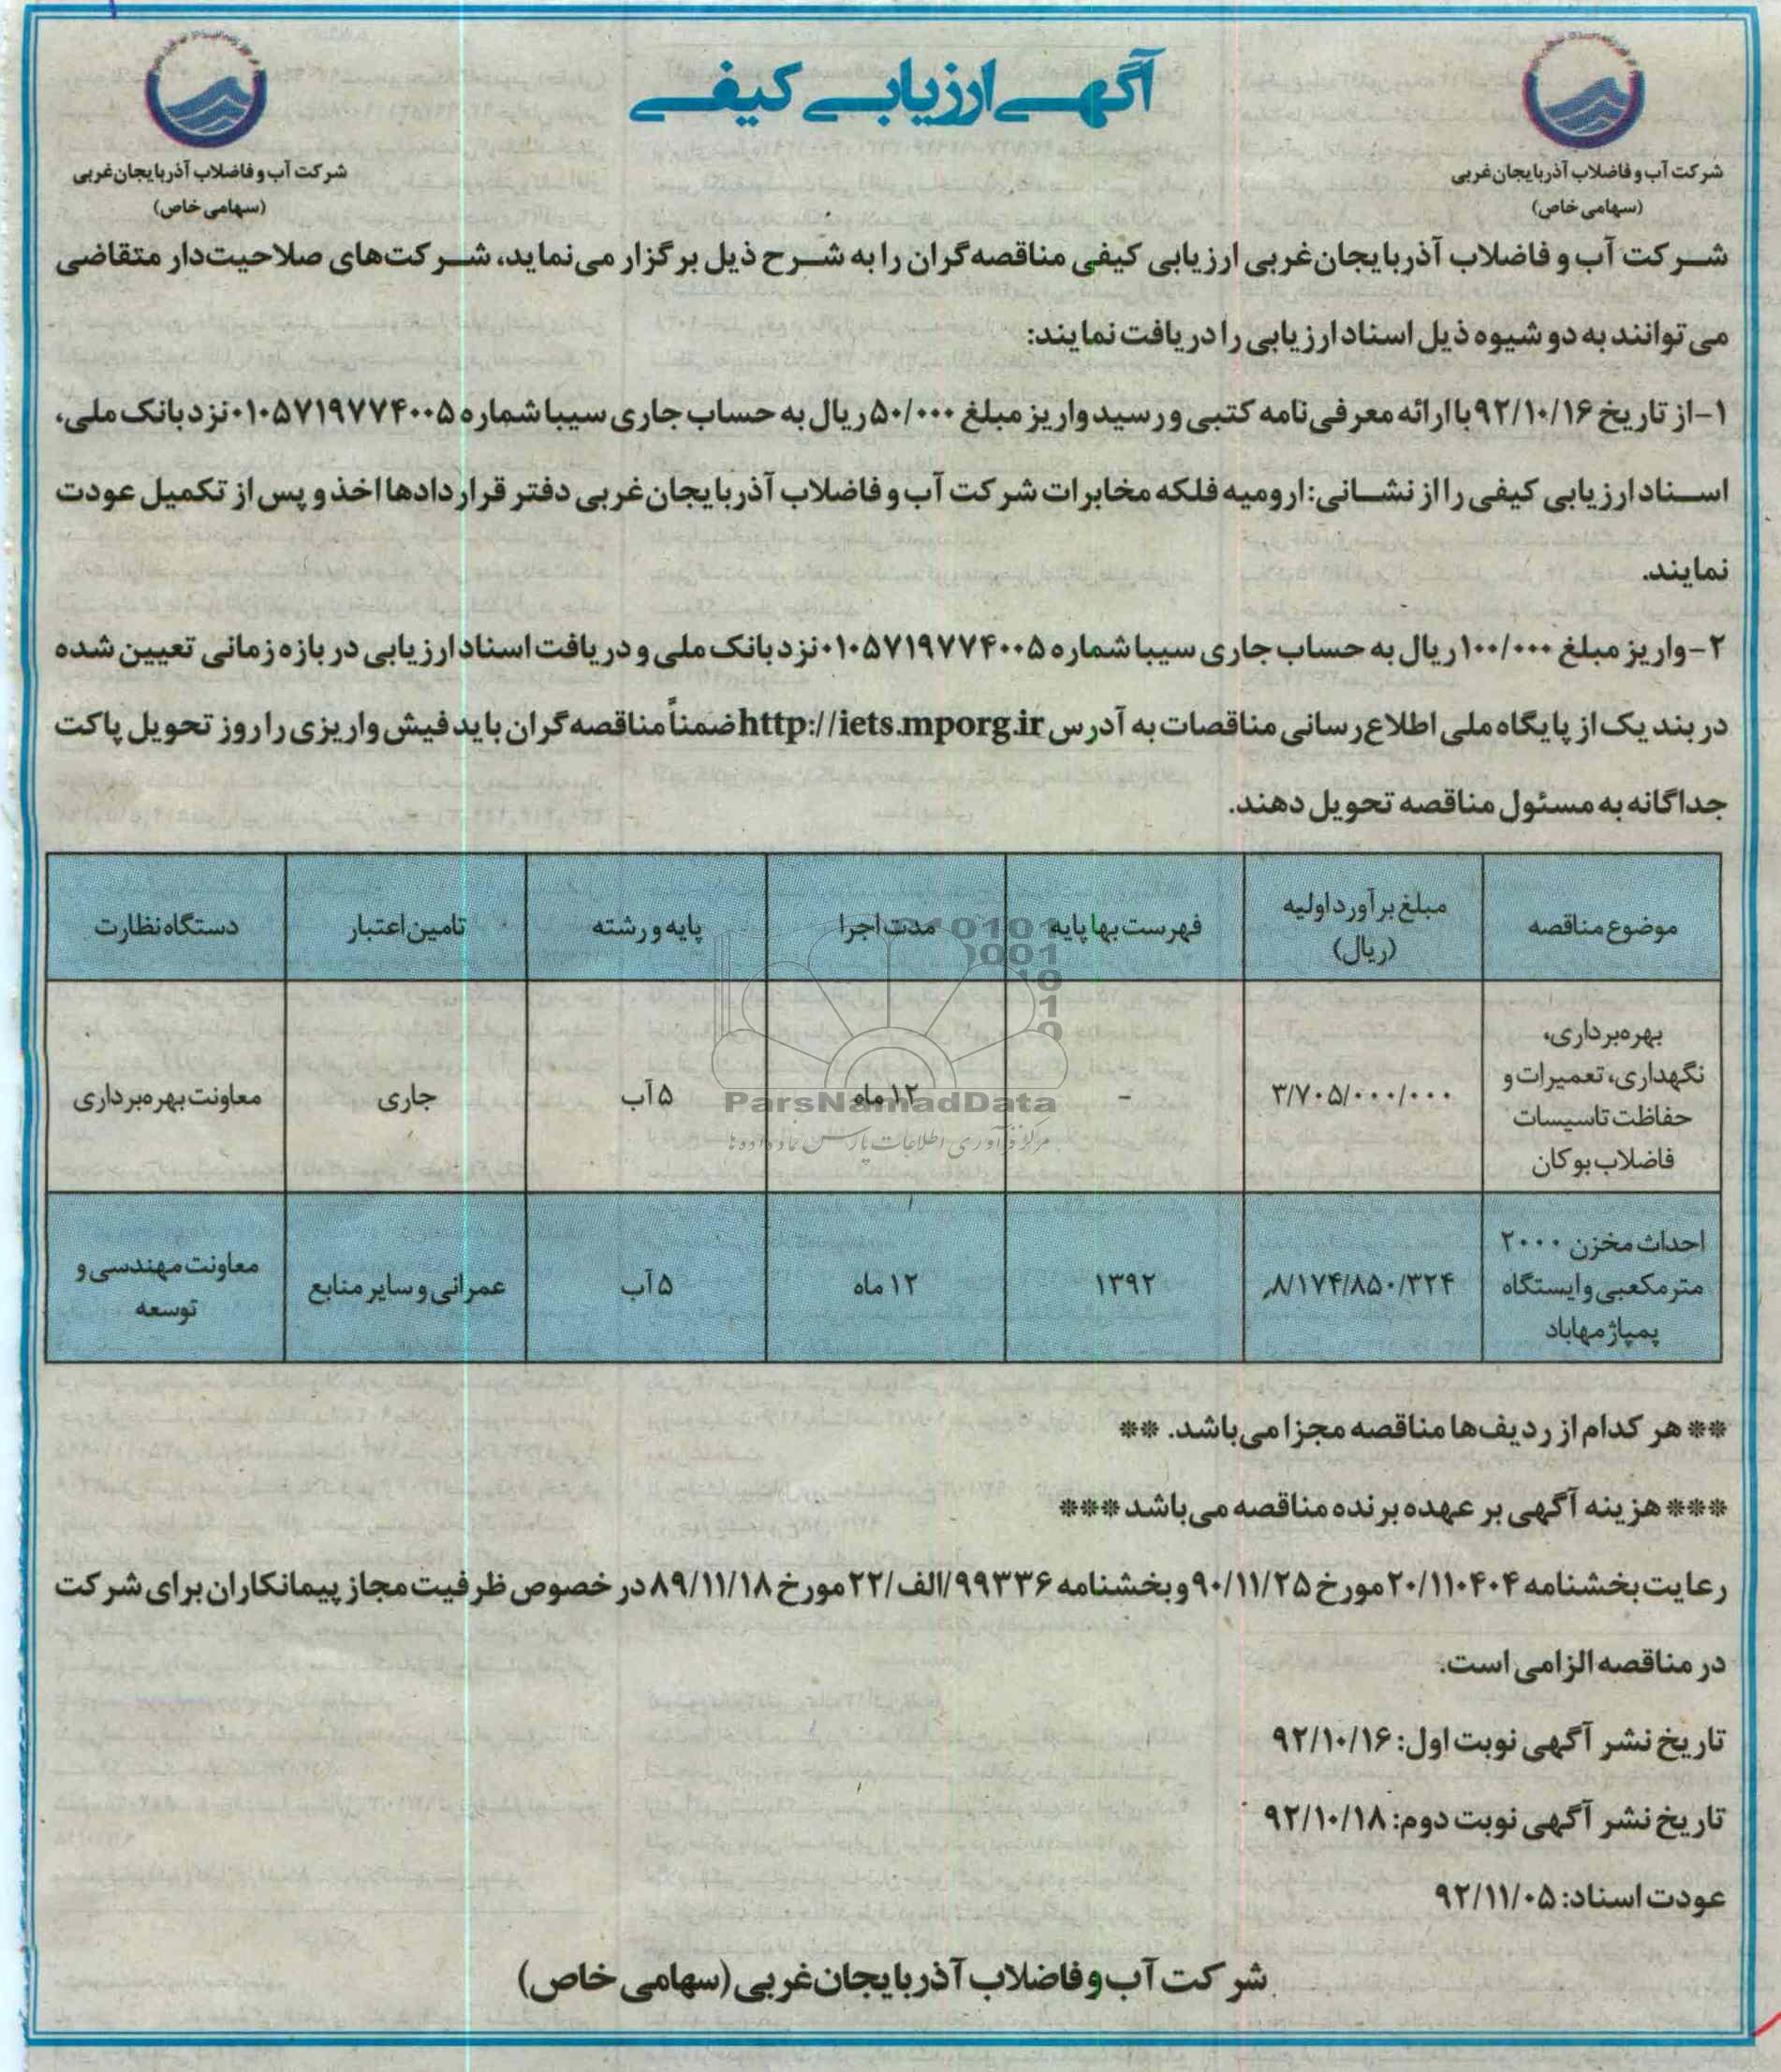 آگهی ارزیابی کیفی
شرکت آب و فاضلاب آذربایجان‌غربی
(سهامی خاص)
شرکت آب و فاضلاب آذربایجان‌غربی
(سهامی خاص)
شرکت آب و فاضلاب آذربایجان‌غربی ارزیابی کیفی مناقصه‌گران را به شرح ذیل برگزار می‌نماید، شرکت‌های صلاحیت‌دار متقاضی
می‌توانند به دو شیوه ذیل اسناد ارزیابی را دریافت نمایند:
۱-از تاریخ ۹۲/۱۰/۱۶ با ارائه معرفی‌نامه کتبی و رسید واریز مبلغ ۵۰/۰۰۰ ریال به حساب جاری سیبا شماره ۰۱۰۵۷۱۹۷۷۴۰۰۵ نزد بانک ملی،
اسناد ارزیابی کیفی را از نشانی: ارومیه فلکه مخابرات شرکت آب و فاضلاب آذربایجان‌غربی دفتر قراردادها اخذ و پس از تکمیل عودت
نمایند.
۲-واریز مبلغ ۱۰۰/۰۰۰ ریال به حساب جاری سیبا شماره ۰۱۰۵۷۱۹۷۷۴۰۰۵ نزد بانک ملی و دریافت اسناد ارزیابی در بازه زمانی تعیین شده
در بند یک از پایگاه ملی اطلاع‌رسانی مناقصات به آدرس http://iets.mporg.ir ضمناً مناقصه‌گران باید فیش واریزی را روز تحویل پاکت
جداگانه به مسئول مناقصه تحویل دهند.
موضوع مناقصه
مبلغ برآورد اولیه
(ریال)
فهرست بها پایه
مدت اجرا
پایه و رشته
تامین اعتبار
دستگاه نظارت
بهره‌برداری،
نگهداری، تعمیرات و
حفاظت تاسیسات
فاضلاب بوکان
۳/۷۰۵/۰۰۰/۰۰۰
-
۱۲ ماه
۵ آب
جاری
معاونت بهره‌برداری
احداث مخزن ۲۰۰۰
مترمکعبی و ایستگاه
پمپاژ مهاباد
۸/۱۷۴/۸۵۰/۳۲۴
۱۳۹۲
۱۲ ماه
۵ آب
عمرانی و سایر منابع
معاونت مهندسی و
توسعه
ParsNamadData
مرکز فرآوری اطلاعات پارس نماد داده ها
** هر کدام از ردیف‌ها مناقصه مجزا می‌باشد. **
*** هزینه آگهی بر عهده برنده مناقصه می‌باشد ***
رعایت بخشنامه ۲۰/۱۱۰۴۰۴ مورخ ۹۰/۱۱/۲۵ و بخشنامه ۹۹۳۳۶/الف/۲۲ مورخ ۸۹/۱۱/۱۸ در خصوص ظرفیت مجاز پیمانکاران برای شرکت
در مناقصه الزامی است.
تاریخ نشر آگهی نوبت اول: ۹۲/۱۰/۱۶
تاریخ نشر آگهی نوبت دوم: ۹۲/۱۰/۱۸
عودت اسناد: ۹۲/۱۱/۰۵
شرکت آب و فاضلاب آذربایجان‌غربی (سهامی خاص)